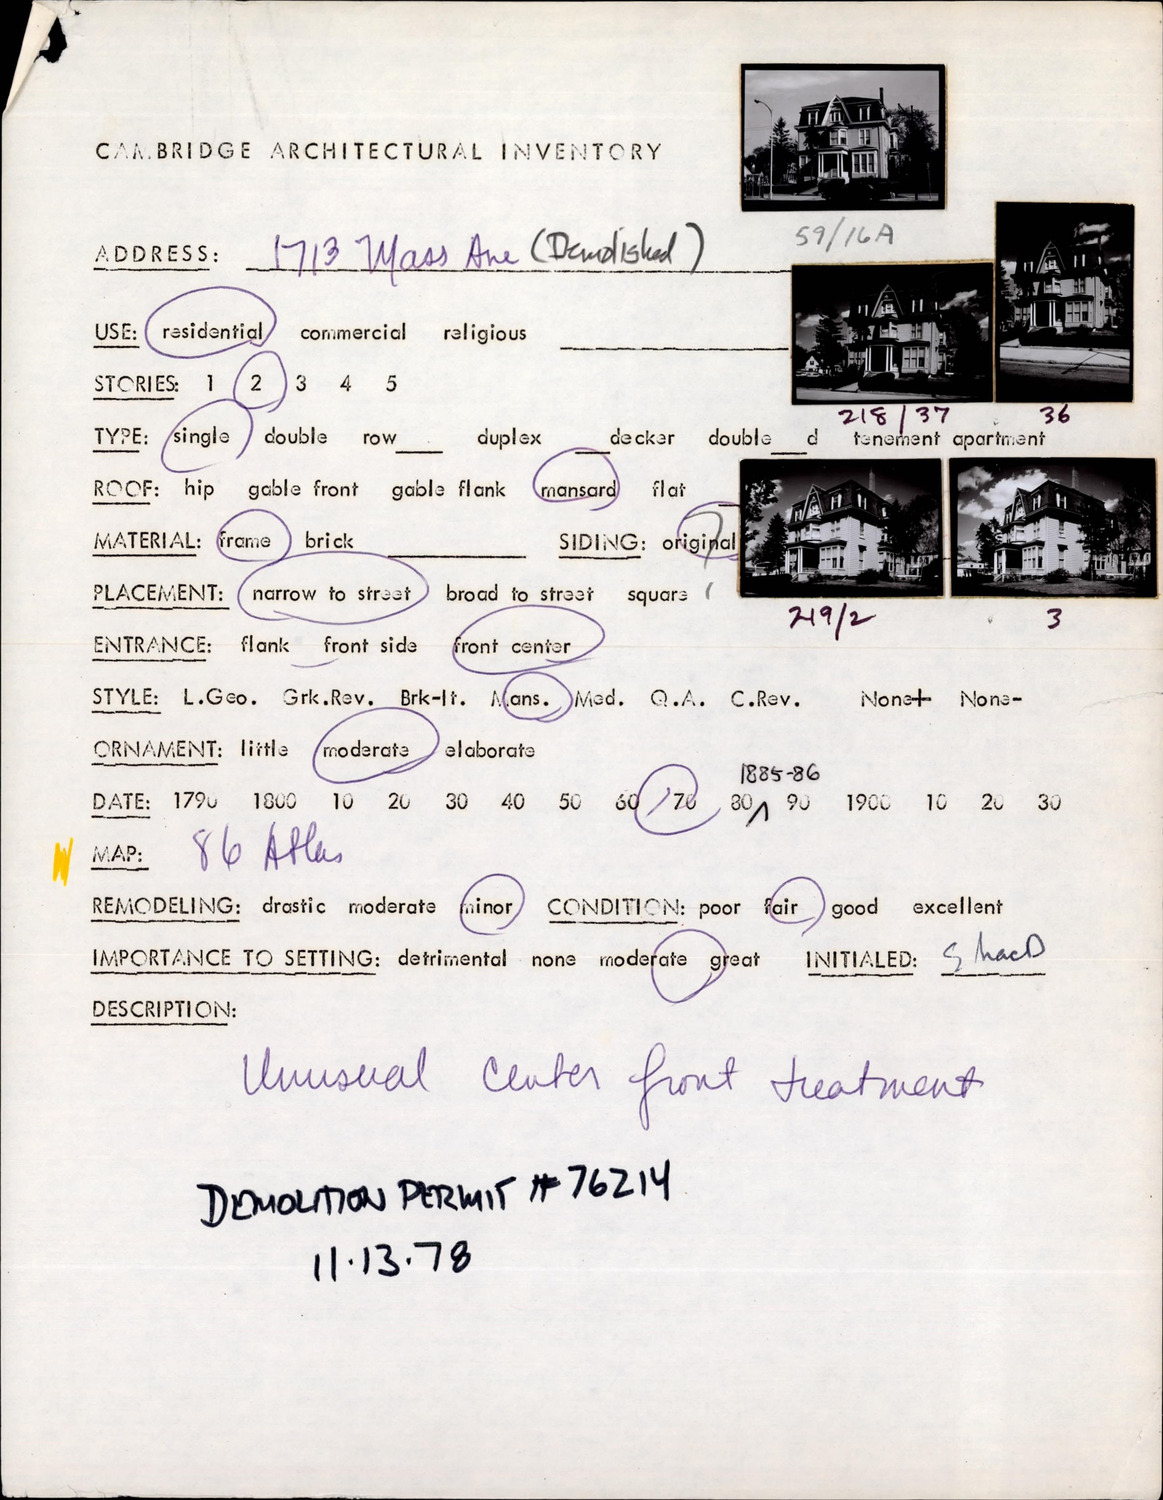 CAMBRIDGE ARCHITECTURAL INVENTORY
59/16A
ADDRESS: 1713 Mass Ave (Demolished)
USE: residential commercial religious
STORIES: 1 2 3 4 5
218/37 36
TYPE: single double row duplex decker double d tenement apartment
ROOF: hip gable front gable flank mansard flat
MATERIAL: frame brick SIDING: original
PLACEMENT: narrow to street broad to street square
219/2 3
ENTRANCE: flank front side front center
STYLE: L.Geo. Grk.Rev. Brk-It. Mans. Med. Q.A. C.Rev. None+ None-
ORNAMENT: little moderate elaborate
1885-86
DATE: 1790 1800 10 20 30 40 50 60 70 80 90 1900 10 20 30
MAP: 86 Atlas
REMODELING: drastic moderate minor CONDITION: poor fair good excellent
IMPORTANCE TO SETTING: detrimental none moderate great INITIALED:
DESCRIPTION:
Unusual center front treatment
DEMOLITION PERMIT # 76214
11.13.78